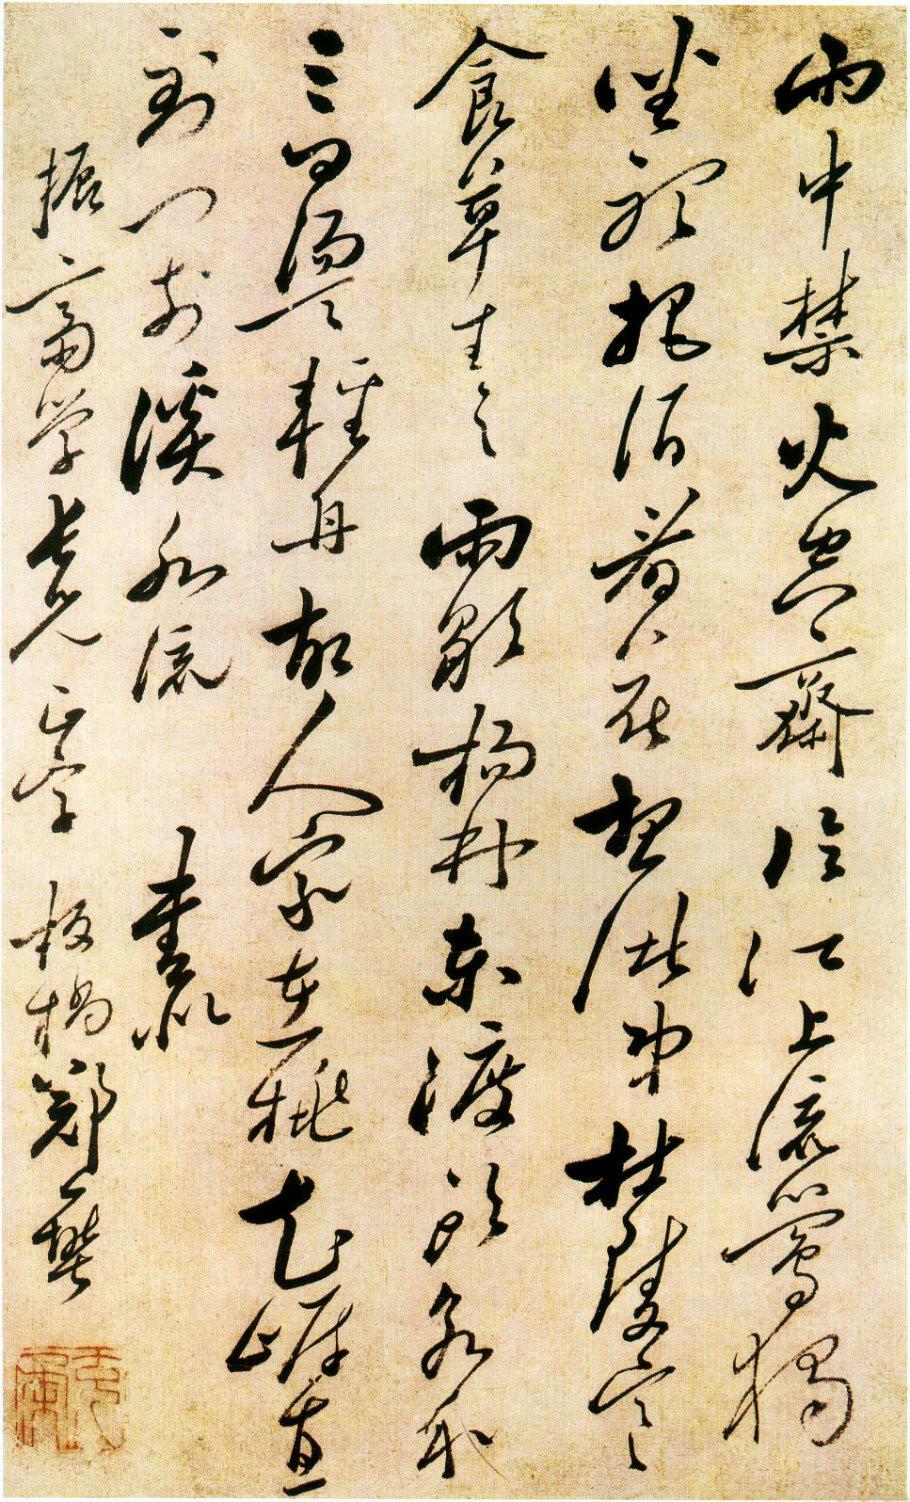 雨中禁火空齋冷江上流鶯獨
坐聽把酒看花想諸弟杜陵寒
食草青々雨歇楊林東渡頭永和
三日盪輕舟故人家在桃花岸直
到門前溪水流 書似
振齋学長兄正字 板橋鄭燮
克柔